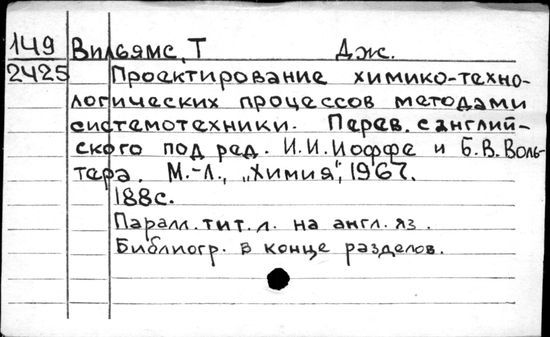 149 Вильямс, Т Дж.
2425 Проектирование химико-техно-
логических процессов методами
системотехники. Перев. с англий-
ского под ред. И.И.Иоффе и Б.В.Воль-
тера. М.-Л., „Химия", 1967.
188с.
Паралл. тит. л. на англ. яз.
Библиогр. в конце разделов.